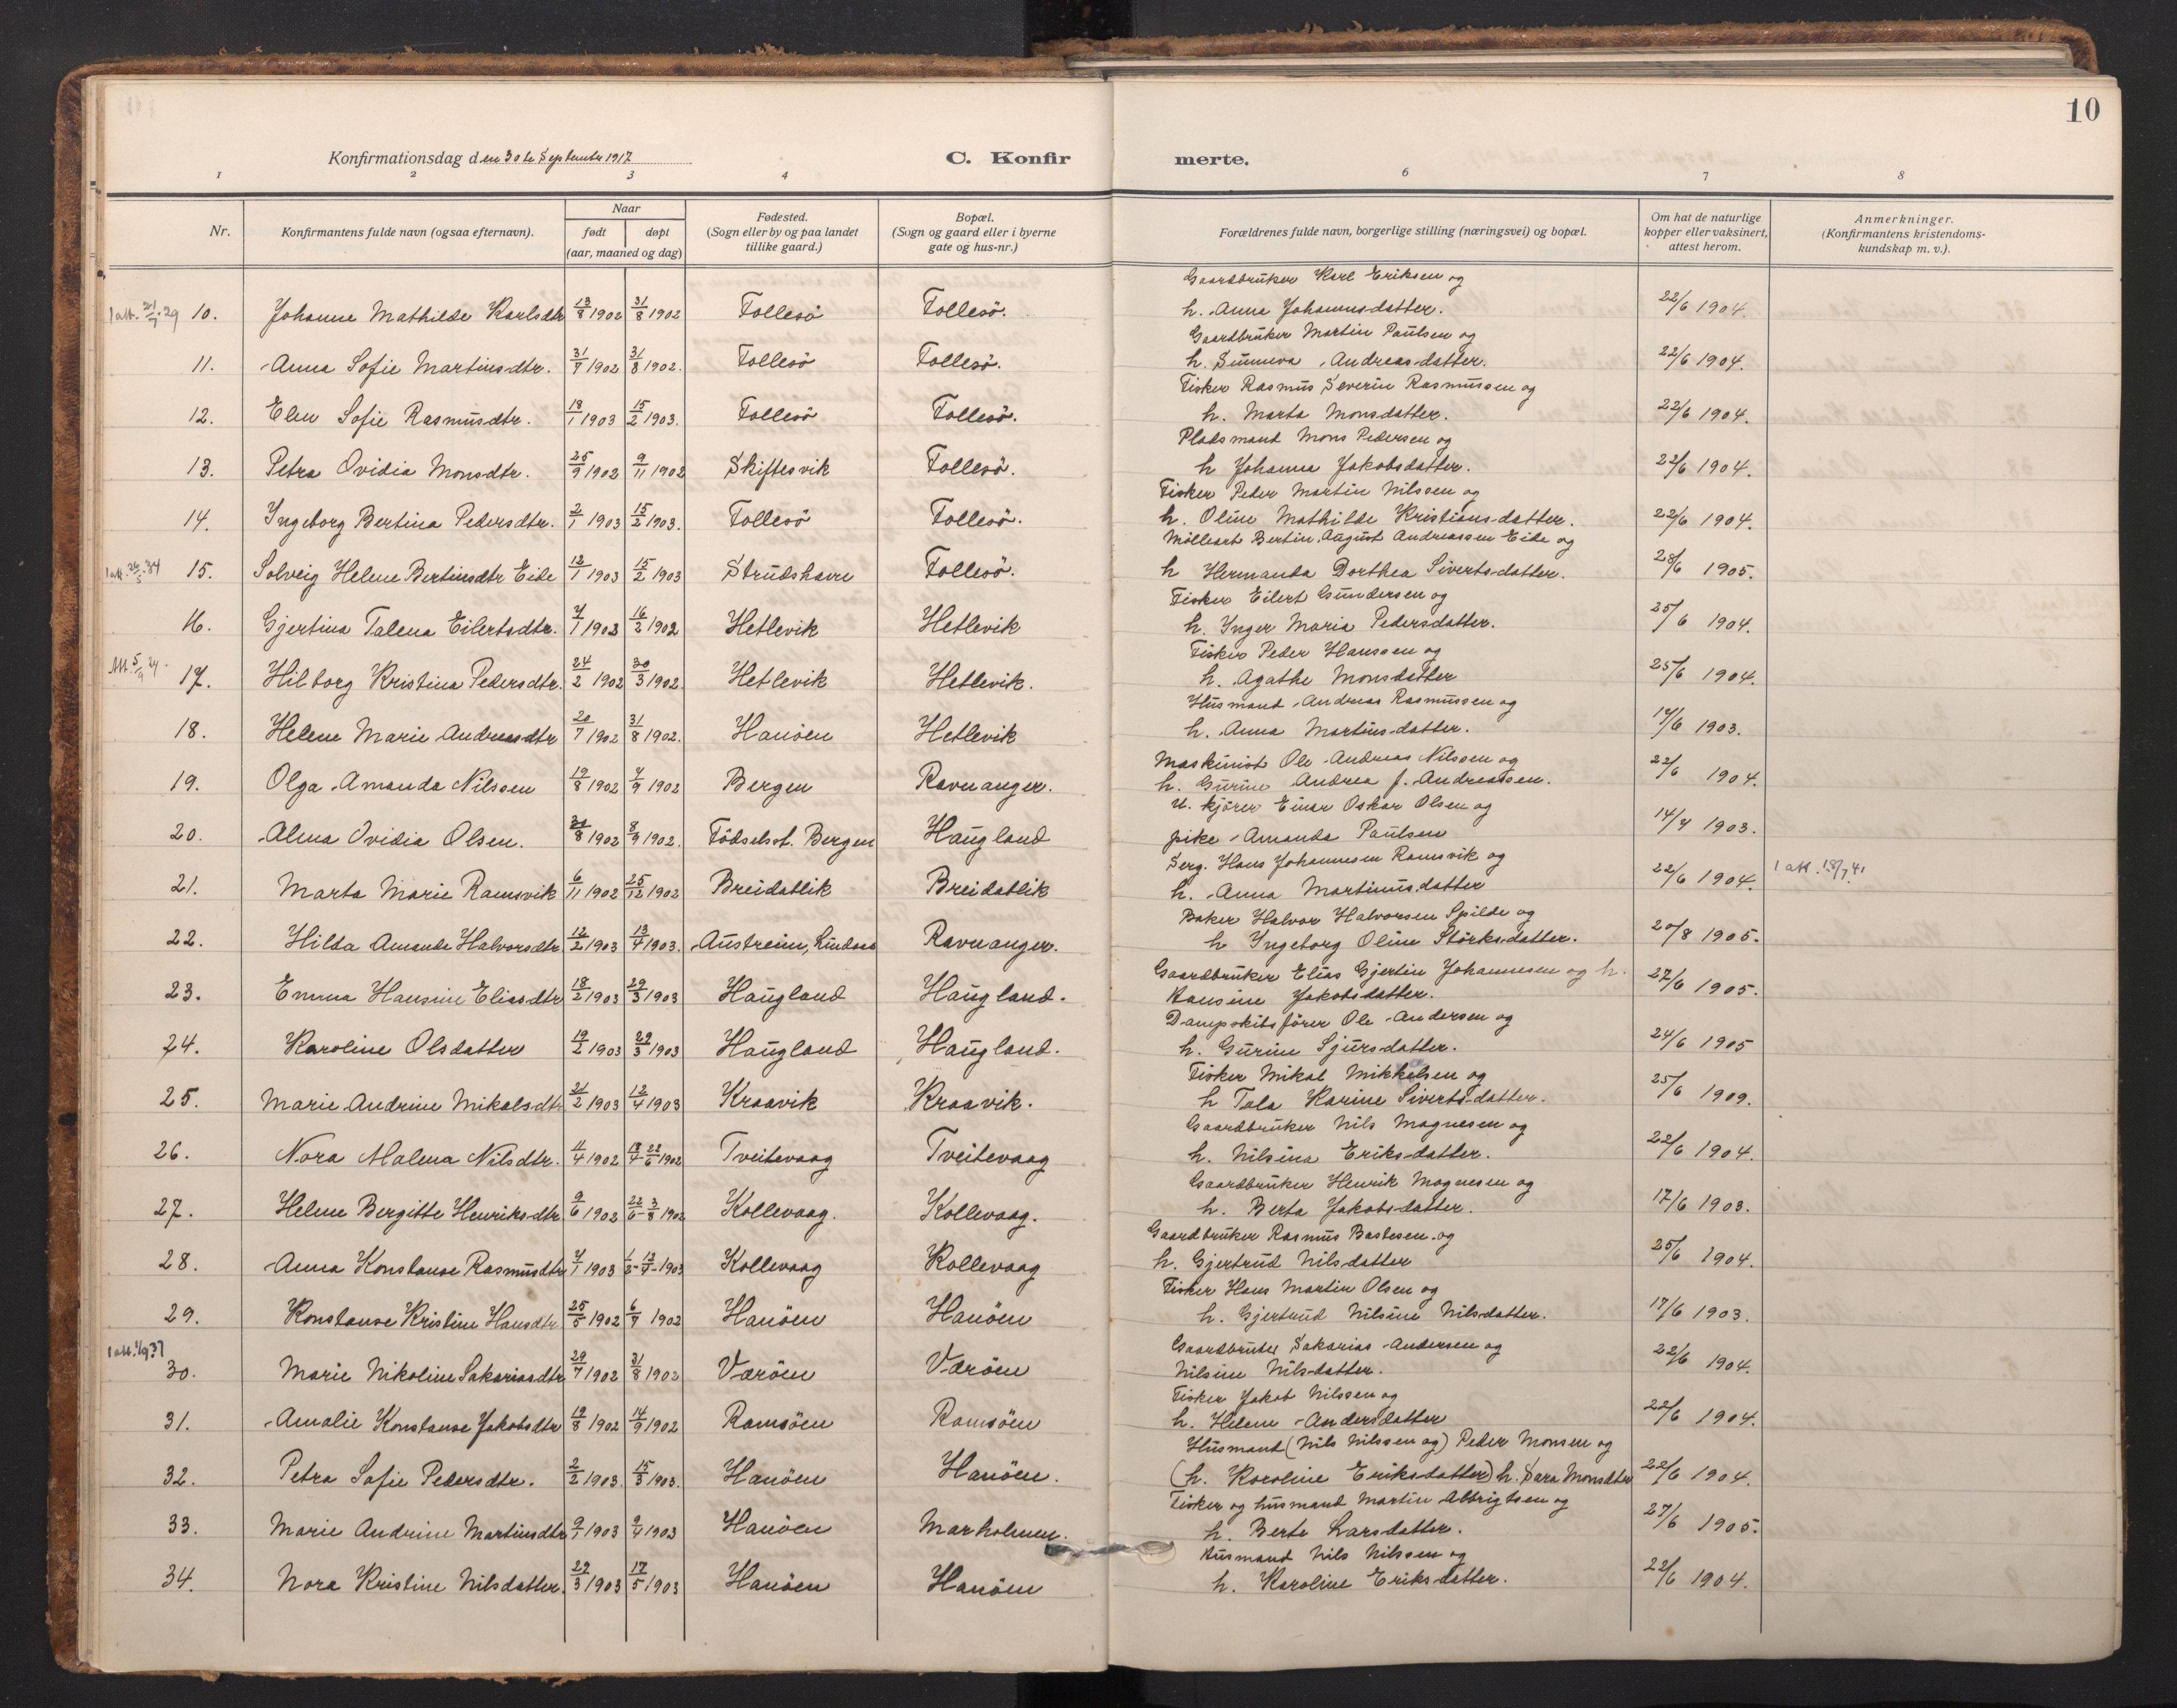 10
Konfirmationsdag den 30te September 1917
C. Konfirmerte.
1 2 3 4 6 7 8
Nr.
Konfirmantens fulde navn (ogsaa efternavn).
Naar
født døpt
(aar, maaned og dag)
Fødested.
(Sogn eller by og paa landet
tillike gaard.)
Bopæl.
(Sogn og gaard eller i byerne
gate og hus-nr.)
Forældrenes fulde navn, borgerlige stilling (næringsvei) og bopæl.
Om hat de naturlige
kopper eller vaksinert,
attest herom.
Anmerkninger.
(Konfirmantens kristendoms-
kundskap m. v.).
Gaardbruker Karl Eriksen og
1 att. 21/7.29 10. Johanne Mathilde Karlsdtr 13/8 1902 31/8 1902 Follesö Follesö. h. Anna Johannesdatter. 22/6 1904.
Gaardbruker Martin Paulsen og
11. Anna Sofie Martinsdtr. 31/7 1902 31/8 1902. Follesö Follesö. h. Sunneva Andreasdatter. 22/6 1904.
Fisker Rasmus Severin Rasmussen og
12. Elen Sofie Rasmusdtr. 18/1 1903 15/2 1903. Follesö Follesö. h. Marta Monsdatter. 22/6 1904.
Pladsmand Mons Pedersen og
13. Petra Ovidia Monsdtr. 25/9 1902 9/11 1902 Skiftesvik Follesö. h Johanna Jakobsdatter. 22/6 1904.
Fisker Peder Martin Nilssen og
14. Ingeborg Bertina Pedersdtr. 2/1 1903 15/2 1903. Follesö Follesö. h. Oline Mathilde Kristiansdatter. 22/6 1904.
Mölleart Bertin August Andreassen Eide og
1 att. 26/5.34 15. Solveig Helene Bertinsdtr Eide 12/1 1903 15/2 1903 Strudshavn Follesö. h Hermanda Dorthea Sivertsdatter. 28/6 1905.
Fisker Eilert Gundersen og
16. Gjertina Talena Eilertsdtr. 7/1 1902 16/2 1902 Hetlevik Hetlevik h. Inger Maria Pedersdatter. 25/6 1904.
Fisker Peder Hanssen og
Att. 5/9 24. 17. Hilborg Kristina Pedersdtr. 24/2 1902 30/3 1902. Hetlevik Hetlevik. h. Agathe Monsdatter 25/6 1904.
Husmand Andreas Rasmussen og
18. Helene Marie Andreasdtr 20/7 1902 31/8 1902. Hanöen Hetlevik h. Anna Martinsdatter. 17/6 1903.
Maskinist Ole Andreas Nilssen og
19. Olga Amanda Nilssen 19/8 1902 7/9 1902 Bergen Ravnanger. h. Gurine Andrea f. Andreassen. 22/6 1904.
U. kjörer Einar Oskar Olsen og
20. Alma Ovidia Olsen. 31/8 1902 8/9 1902. Födselsst. Bergen Haugland pike Amanda Paulsen 14/7 1903.
Serg. Hans Johannesen Ramsvik og
21. Marta Marie Ramsvik 6/11 1902 25/12 1902 Breidablik Breidablik h. Anna Martinusdatter 22/6 1904. 1 att. 18/7.41
Baker Halvor Halvorsen Spilde og
22. Hilda Amanda Halvorsdtr 12/2 1903 13/4 1903. Austreim, Lindaas Ravnanger. h Ingeborg Oline Störksdatter. 20/8 1905.
Gaardbruker Elias Gjertin Johannesen og h.
23. Emma Hansine Eliasdtr 18/2 1903 29/3 1903 Haugland Haugland. Hansine Jakobsdatter. 27/6 1905.
Dampskibsförer Ole Andersen og
24. Karoline Olsdatter 19/2 1903 29/3 1903 Haugland Haugland. h. Gurine Sjursdatter. 24/6 1905
Fisker Mikal Mikkelsen og
25. Marie Andrine Mikalsdtr 21/2 1903 12/4 1903 Kraavik Kraavik. h Tala Karine Sivertsdatter. 25/6 1909.
Gaardbruker Nils Magnesen og
26. Nora Malena Nilsdtr. 11/4 1902 18/4-22/6 1902 Tveitevaag Tveitevaag h. Nilsina Eriksdatter. 22/6 1904.
Gaardbruker Henrik Magnesen og
27. Helene Bergitte Henriksdtr. 9/6 1902 22/6-3/8 1902 Kollevaag. Kollevaag. h. Berta Jakobsdatter. 17/6 1903.
Gaardbruker Rasmus Bastesen og
28. Anna Konstanse Rasmusdtr 7/1 1903 1/2-12/4-1903 Kollevaag Kollevaag h. Gjertrud Nilsdatter 25/6 1904.
Fisker Hans Martin Olsen og
29. Konstanse Kristine Hansdtr 25/5 1902 6/7 1902 Hanöen Hanöen h. Gjertrud Nilsine Nilsdatter. 17/6 1903.
Gaardbruker Sakarias Andersen og
1 att. 1/9 37 30. Marie Nikoline Sakariasdtr 29/7 1902 31/8 1902 Væröen Væröen Nilsine Nilsdatter. 22/6 1904.
Fisker Jakob Nilssen og
31. Amalie Konstanse Jakobsdtr 19/8 1902 14/9 1902 Ramsöen Ramsöen h. Helene Andersdatter 22/6 1904.
Husmand (Nils Nilssen og) Peder Monsen og
32. Petra Sofie Pedersdtr. 2/2 1903. 15/3 1903. Hanöen Hanöen. (h. Karoline Eriksdatter) h. Sara Monsdtr 22/6 1904.
Fisker og husmand Martin Albrigtsen og
33. Marie Andrine Martinsdtr 9/1 1903 9/4 1903 Hanöen Marholmen. h. Berte Larsdatter. 27/6 1905.
Husmand Nils Nilssen og
34. Nora Kristine Nilsdatter. 29/3 1903 17/5 1903 Hanöen Hanöen h. Karoline Eriksdatter. 22/6 1904.